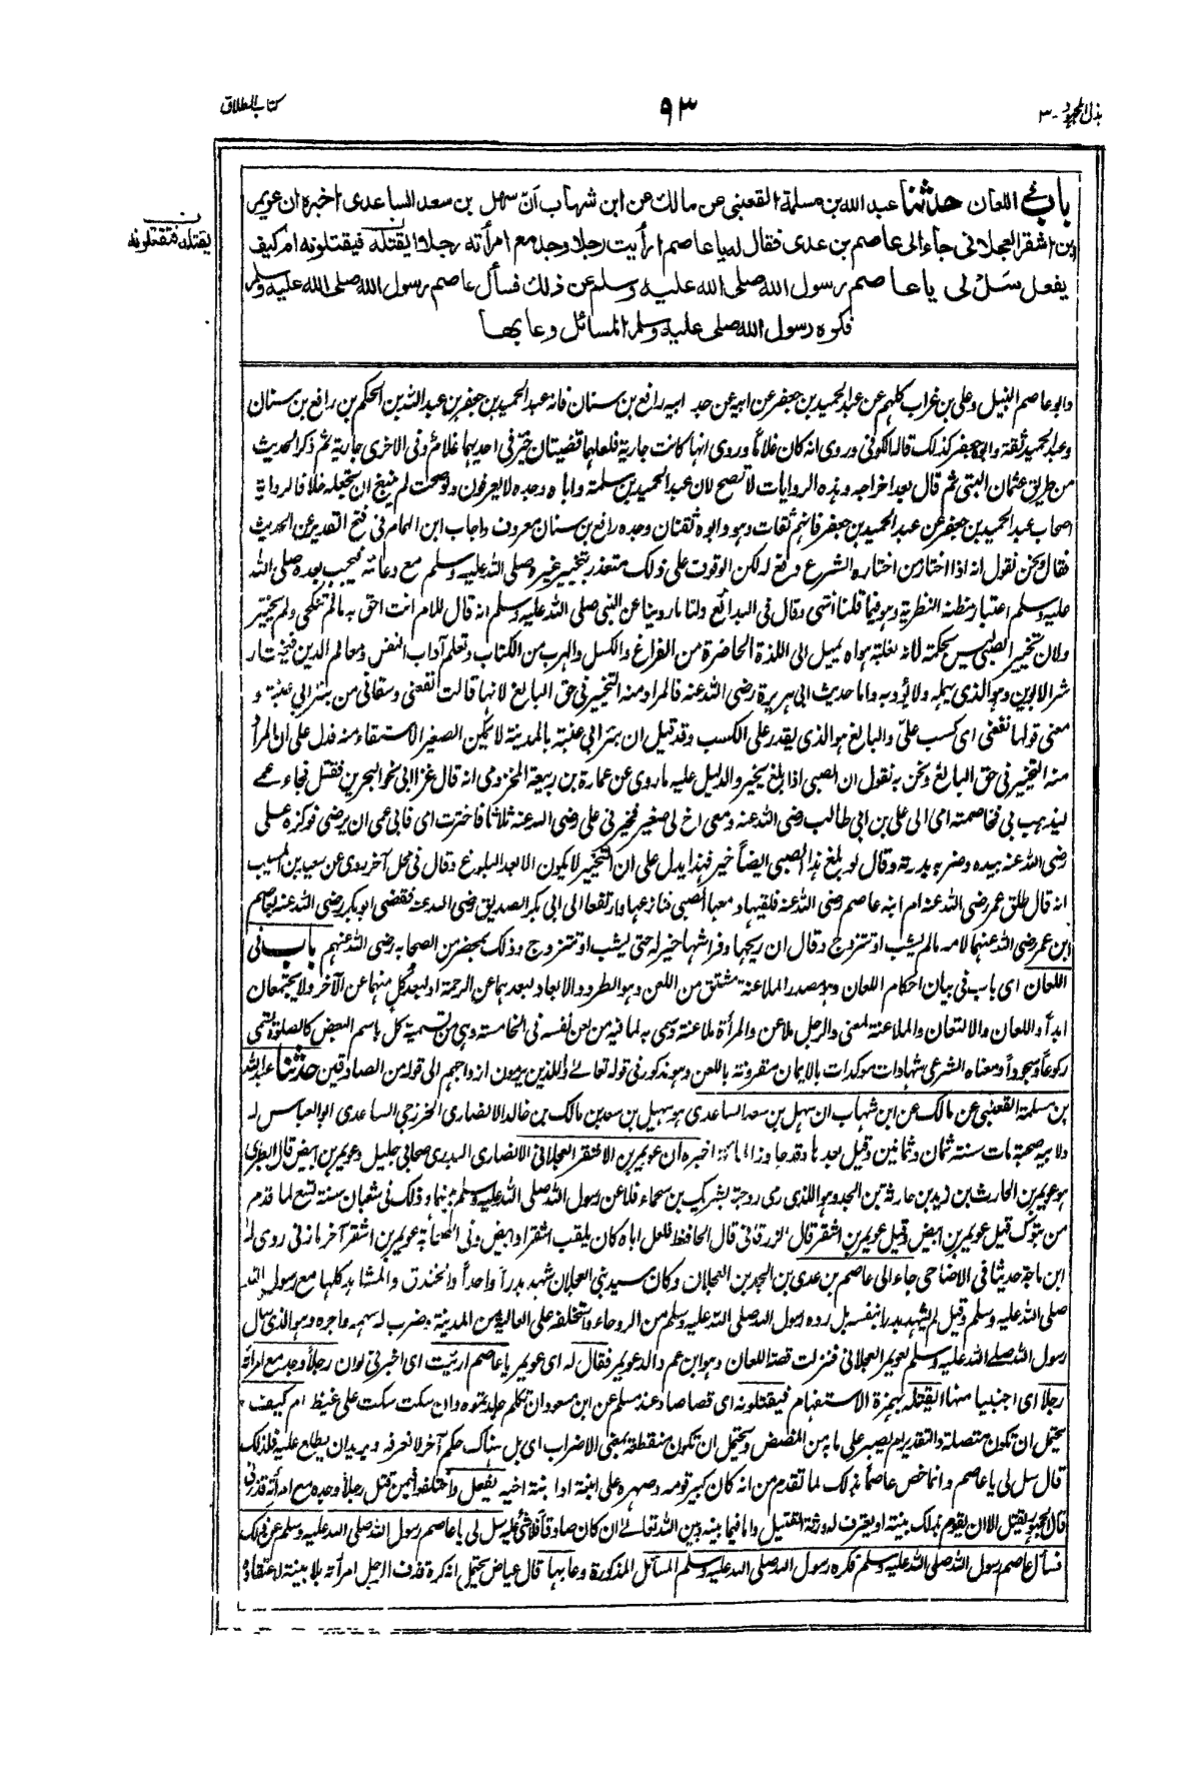 بذل المجهود - ٣
٩٣
كتاب الطلاق
باب في اللعان حدثنا عبد الله بن مسلمة القعنبى عن مالك عن ابن شهاب ان سهل بن سعد الساعدى اخبره ان عويمر
بن اشقر العجلانى جاء الى عاصم بن عدى فقال له يا عاصم ارأيت رجلا وجد مع امرأته رجلا ايقتله فيقتلونه ام كيف
يفعل سل لى يا عاصم رسول الله صلى الله عليه وسلم عن ذلك فسأل عاصم رسول الله صلى الله عليه وسلم
فكره رسول الله صلى عليه وسلم المسائل وعابها
ن
يقتله فتقتلونه
وابو عاصم النبيل وعلى بن غراب كلهم عن عبد الحميد بن جعفر عن ابيه عن جد ابيه رافع بن سنان فانه عبد الحميد بن جعفر بن عبد الله بن الحكم بن رافع بن سنان
وعبد الحميد ثقة وابو جعفر كذلك قاله الكوفى وروى انه كان غلاما وروى انها كانت جارية فلعلهما قضيتان خير فى احديهما غلام وفى الاخرى جارية ثم ذكر الحديث
من طريق عثمان البتى ثم قال بعد اخراجه وهذه الروايات لا تصح لان عبد الحميد بن سلمة واباه وجده لا يعرفون ولو صحت لم ينبغ ان تجعله خلافا لرواية
اصحاب عبد الحميد بن جعفر عن عبد الحميد بن جعفر فانهم ثقات وهو وابوه ثقتان وجده رافع بن سنان معروف واجاب ابن الهمام فى فتح القدير عن الحديث
فقال ونحن نقول انه اذا اختار من اختاره الشرع دفع له لكن الوقوف على ذلك متعذر بتخيير غيره صلى الله عليه وسلم مع دعائه فيجب بعده صلى الله
عليه وسلم اعتبار مظنة النظرية وهو فيما قلنا انتهى وقال فى البدائع ولنا ما روينا عن النبى صلى الله عليه وسلم انه قال للام انت احق به مالم تنكحى ولم يخير
ولان تخيير الصبى ليس بحكمة لانه لغلبة هواه يميل الى اللذة الحاضرة من الفراغ والكسل والهرب من الكتاب وتعلم آداب النفس ومعالم الدين فيختار
شر الابوين وهو الذى يهمله ولا يؤدبه واما حديث ابى هريرة رضى الله عنه فالمراد منه التخيير فى حق البالغ لانها قالت نفعنى وسقانى من بئر ابى عنبة و
معنى قولها نفعنى اى كسب علىّ والبالغ هو الذى يقدر على الكسب وقد قيل ان بئر ابى عنبة بالمدينة لا يمكن الصغير الاستقاء منه فدل على ان المراد
منه التخيير فى حق البالغ ونحن به نقول ان الصبى اذا بلغ يخير والدليل عليه ما روى عن عمارة بن ربيعة المخزومى انه قال غزا ابى نحو البحرين فقتل فجاء عمى
ليذهب بى فخاصمته امى الى على بن ابى طالب رضى الله عنه ومعى اخ لى صغير فخيرنى على رضى الله عنه ثلاثا فاخترت امى فابى عمى ان يرضى فوكزه على
رضى الله عنه بيده وضربه بدرته وقال لو بلغ هذا الصبى ايضا خير فهذا يدل على ان التخيير لا يكون الا بعد البلوغ وقال فى محل آخر روى عن سعيد بن المسيب
انه قال طلق عمر رضى الله عنه ام ابنه عاصم رضى الله عنه فلقيها ومعها الصبى فنازعها وارتفعا الى ابى بكر الصديق رضى الله عنه فقضى ابو بكر رضى الله عنه بعاصم
ابن عمر رضى الله عنهما لامه مالم يشب او تتزوج وقال ان ريحها وفراشها خير له حتى يشب او تتزوج وذلك بمحضر من الصحابة رضى الله عنهم باب فى
اللعان اى باب فى بيان احكام اللعان وهو مصدر الملاعنة مشتق من اللعن وهو الطرد والابعاد لبعدهما عن الرحمة او لبعد كل منهما عن الآخر ولا يجتمعان
ابدا واللعان والالتعان والملاعنة لمعنى والرجل ملاعن والمرأة ملاعنة وسمى به لما فيه من لعن نفسه فى الخامسة وهى من تسمية كل باسم البعض كالصلوة تسمى
ركوعا وسجودا ومعناه الشرعى شهادات موكدات بالايمان مقرونة باللعن وهو مذكور فى قوله تعالى والذين يرمون ازواجهم الى قوله من الصادقين حدثنا عبد الله
بن مسلمة القعنبى عن مالك عن ابن شهاب ان سهل بن سعد الساعدى هو سهيل بن سعد بن مالك بن خالد الانصارى الخزرجى الساعدى ابو العباس له
ولابيه صحبة مات سنة ثمان وثمانين وقيل بعدها وقد جاوز المائة اخبره ان عويمر بن الاشقر العجلانى الانصارى البدرى صحابى جليل وعويمر بن ابيض قال الطبرى
هو عويمر بن الحارث بن زيد بن حارثة بن الجد وهو الذى رمى زوجته بشريك بن سحماء فلاعن رسول الله صلى الله عليه وسلم بينهما وذلك فى شعبان سنة تسع لما قدم
من تبوك قيل عويمر بن ابيض وقيل عويمر بن اشقر قال الزرقانى قال الحافظ فلعل اباه كان يلقب اشقر او ابيض وفى الصحابة عويمر بن اشقر آخر مازنى روى له
ابن ماجة حديثا فى الاضاحى جاء الى عاصم بن عدى بن الجد بن العجلان وكان سيد بنى العجلان شهد بدرا واحدا والخندق والمشاهد كلها مع رسول الله
صلى الله عليه وسلم وقيل لم يشهد بدرا بنفسه بل رده رسول الله صلى الله عليه وسلم من الروحاء واستخلفه على العالية من المدينة وضرب له سهمه واجره وهو الذى سأل
رسول الله صلى الله عليه وسلم لعويمر العجلانى فنزلت قصة اللعان وهو ابن عم والد عويمر فقال له اى عويمر يا عاصم ارئيت اى اخبرنى لو ان رجلا وجد مع امرأته
رجلا اى اجنبيا منها ايقتله بهمزة الاستفهام فيقتلونه اى قصاصا وعند مسلم عن ابن مسعود ان تكلم جلدتموه وان سكت سكت على غيظ ام كيف
يحتمل ان تكون متصلة والتقدير ام يصبر على ما به من المضض ويحتمل ان تكون منقطعة بمعنى الاضراب اى بل هناك حكم آخر لا نعرفه ويريد ان يطلع عليه فلذلك
قال سل لى يا عاصم وانما خص عاصما بذلك لما تقدم من انه كان كبير قومه وصهره على ابنته او ابنة اخيه يفعل واختلفوا فيمن قتل رجلا وجده مع امرأته قد زنى
قال الجمهور يقتل الا ان يقوم بذلك بينة او يعترف له ورثة القتيل واما فيما بينه وبين الله تعالى ان كان صادقا فلا شئ عليه سل لى يا عاصم رسول الله صلى الله عليه وسلم عن ذلك
فسأل عاصم رسول الله صلى الله عليه وسلم فكره رسول الله صلى الله عليه وسلم المسائل المذكورة وعابها قال عياض يحتمل انه كره قذف الرجل امرأته بلا بينة لاعتقاده